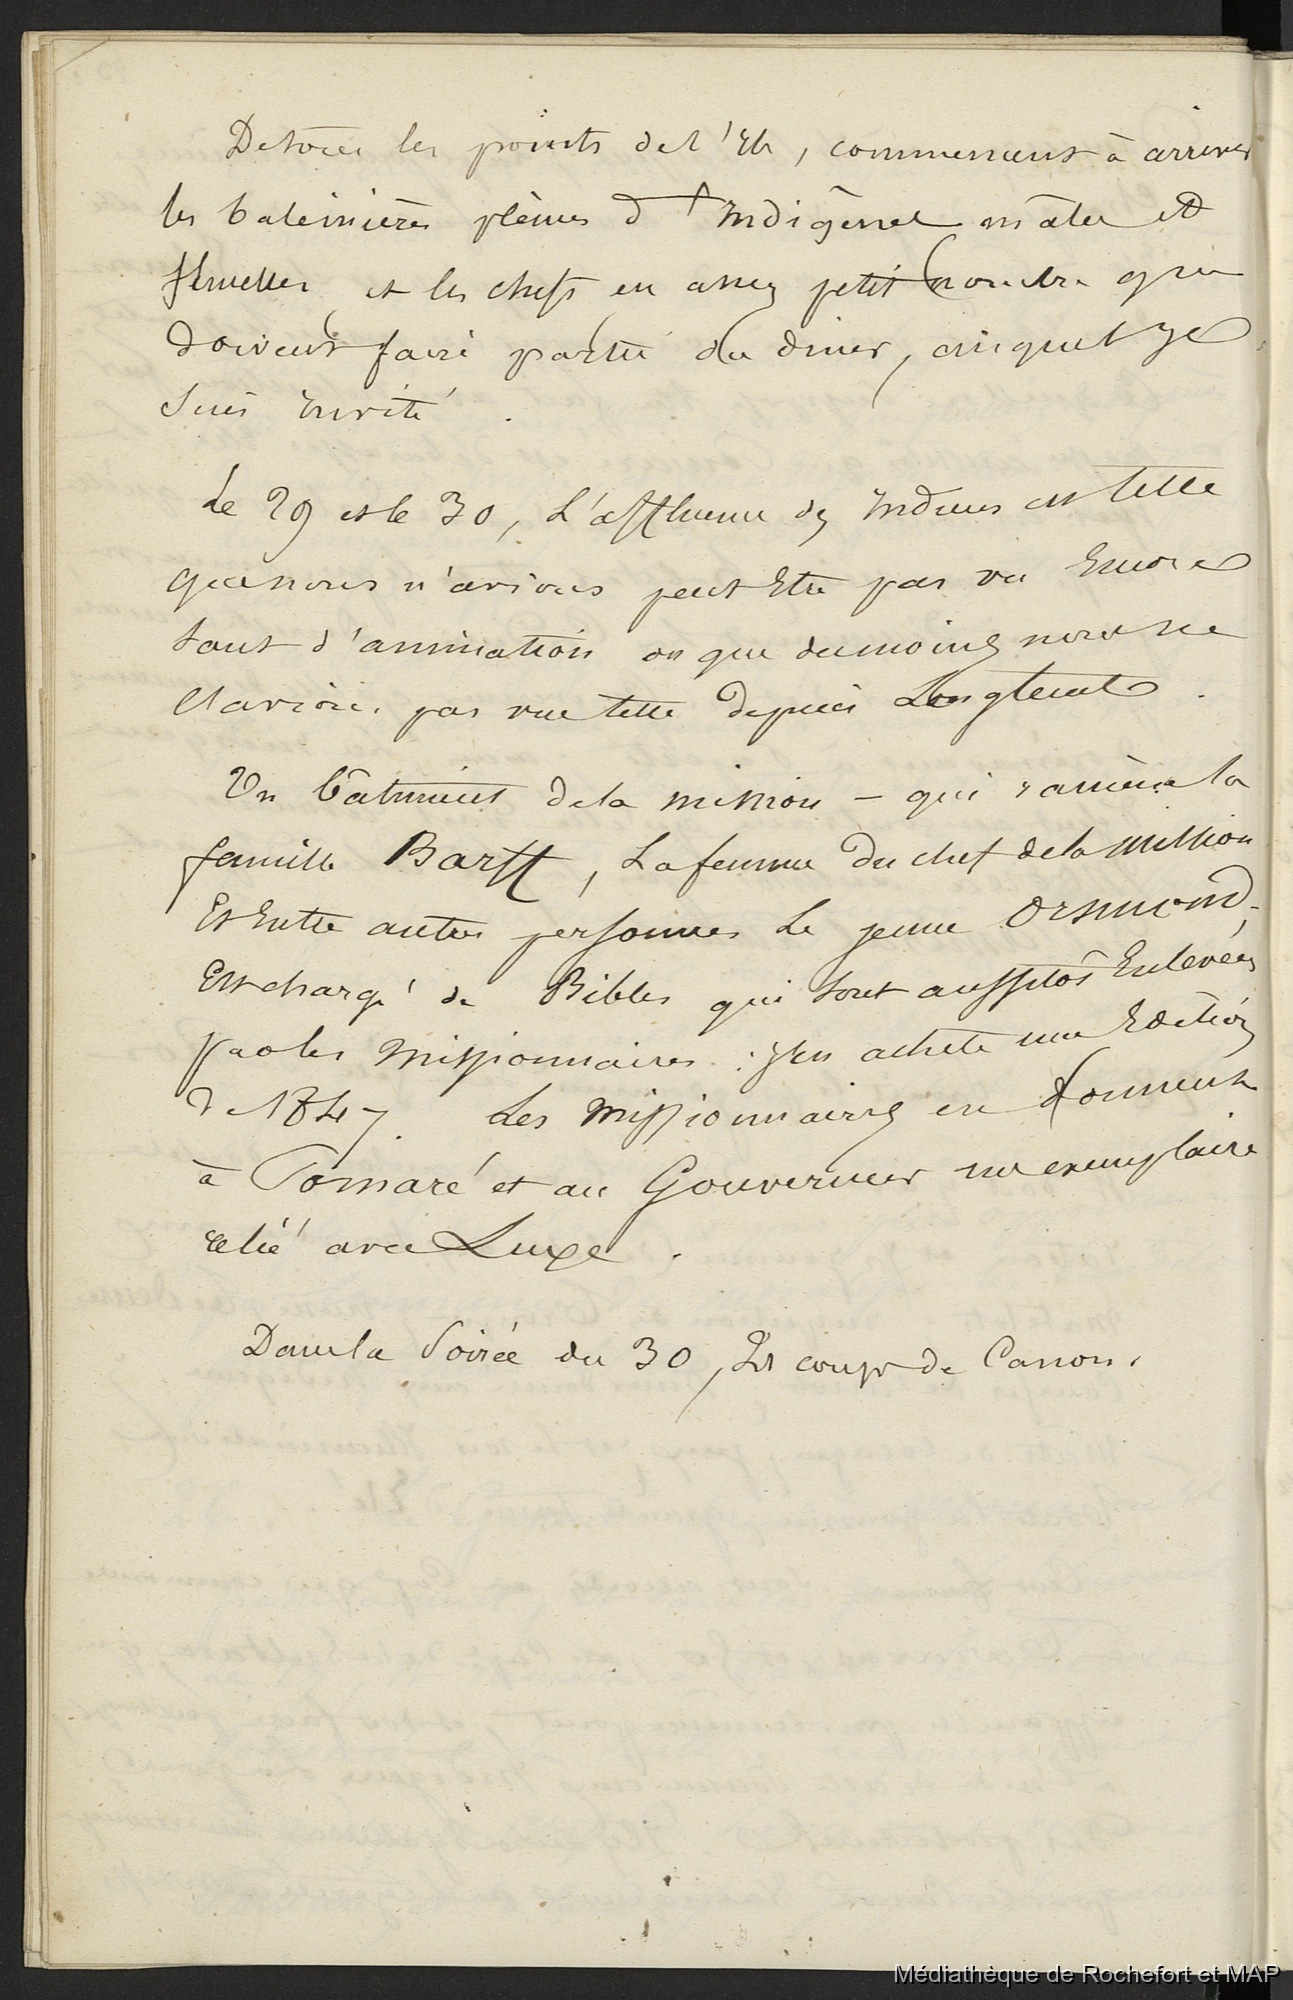 De tous les points de l'Ile, commencent à arriver
les baleinières pleines d'Indigènes mâles et
femelles et les chefs en assez petit nombre qui
doivent faire partie du diner, auquel je
suis invité.
Le 29 et le 30, L'affluence des Indiens est telle
que nous n'avions peut Etre pas vu Encore
tant d'animation ou que du moins nous ne
l'avions pas vue telle depuis Longtemps.
Un bâtiment de la mission – qui ramène la
famille Barff, La femme du chef de la mission
Et Entre autres personnes Le jeune Orsmond,
Est chargé de Bibles qui sont aussitôt Enlevées
par les missionnaires. J'en achète une Edition
de 1847. Les missionnaires en donnent
à Pomaré et au Gouverneur un exemplaire
relié avec Luxe.
Dans la Soirée du 30, coups de Canon.
Médiathèque de Rochefort et MAP